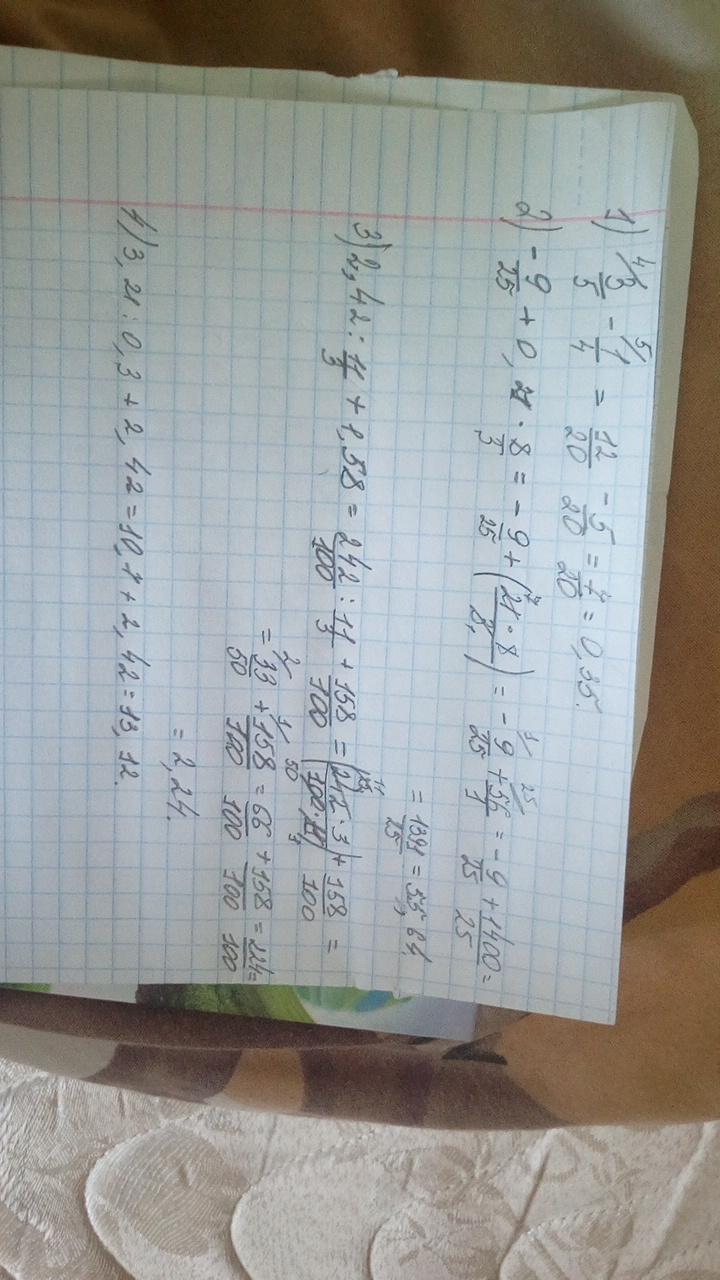 1) ⁴⁄3/5 - ⁵⁄1/4 = 12/20 - 5/20 = 7/20 = 0,35.
2) - 9/25 + 0, 21 · 8/3 = - 9/25 + (21⁷ · 8/3₁) = - ¹⁄9/25 + ²⁵⁄56/1 = - 9/25 + 1400/25 =
= 1391/25 = 55,64.
3) 2,42 : 11/3 + 1,58 = 242/100 : 11/3 + 158/100 = (242 · 3/100 · 11) + 158/100 =
= ²⁄33/50 + ¹⁄158/100 = 66/100 + 158/100 = 224/100 =
= 2,24.
4) 3,21 : 0,3 + 2,42 = 10,7 + 2,42 = 13,12.